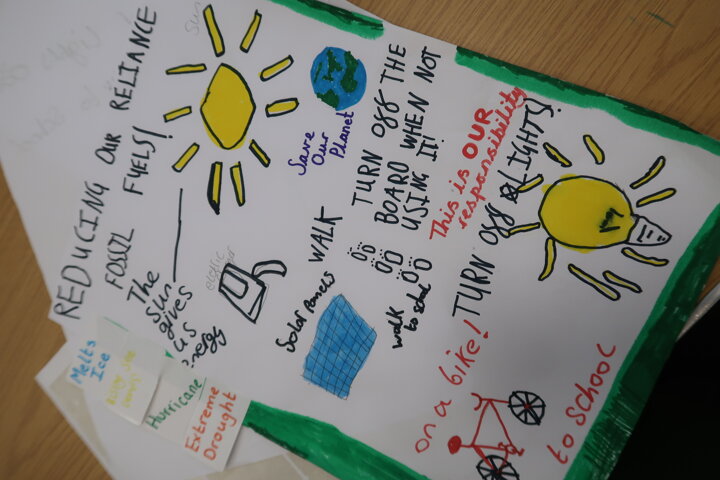 REDUCING OUR RELIANCE
FOSSIL FUELS!
sun
The
sun
gives
us
energy
Save
Our
Planet
TURN OFF THE
BOARD WHEN NOT
USING IT!
This is OUR
responsibility
TURN OFF LIGHTS!
WALK
electric
Solar Panels
walk
to
on a bike!
to School
Melts
Ice
Hurricane
Extreme
Drought